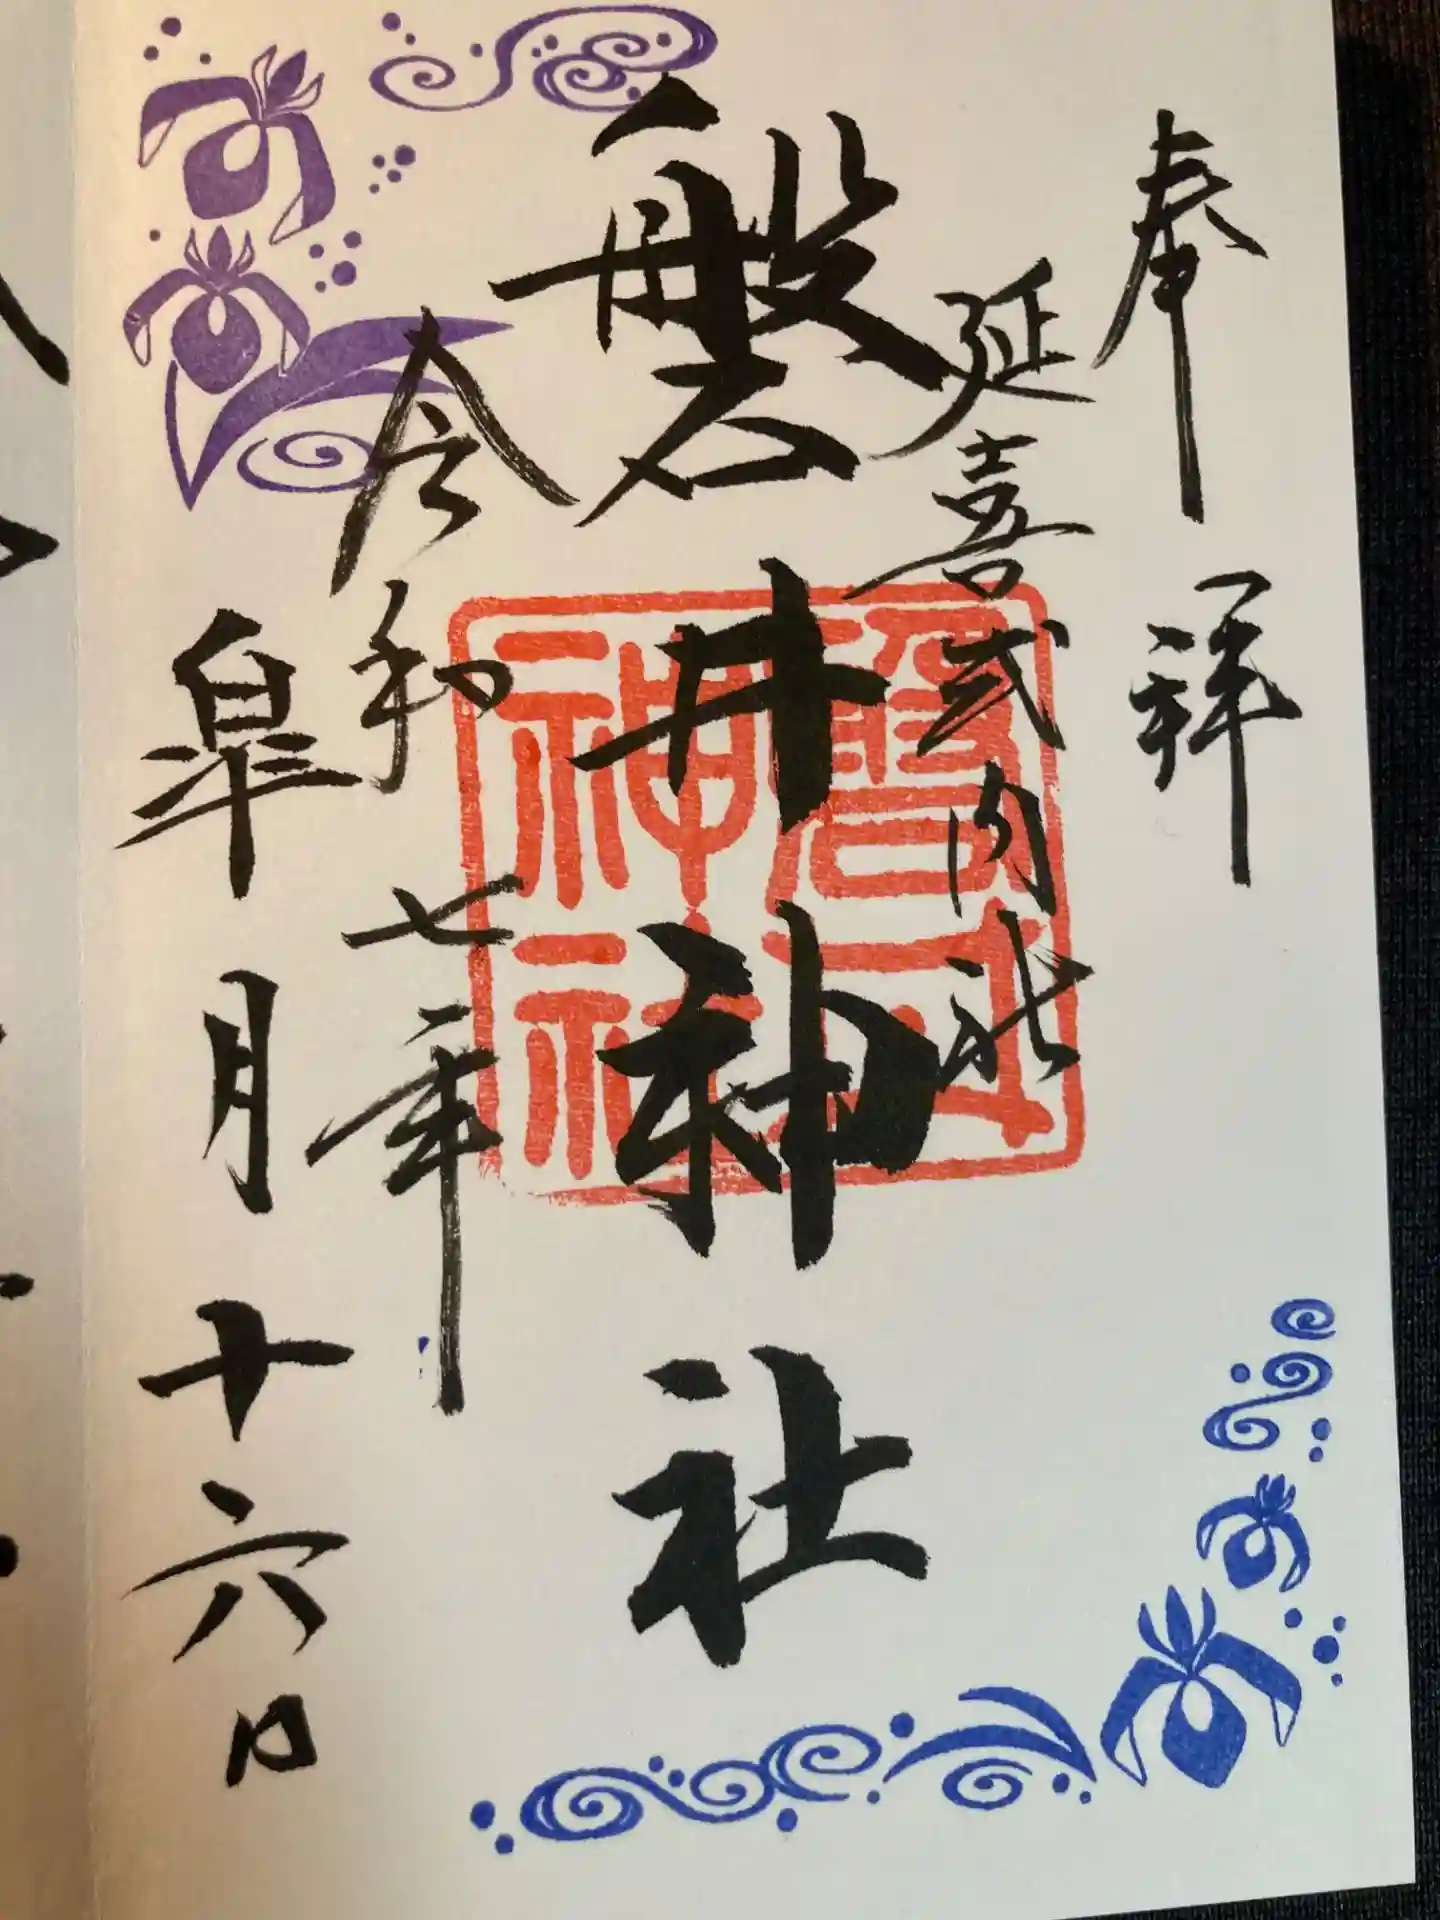 奉拝
延喜式内社
磐井神社
令和七年
皐月十六日
神社